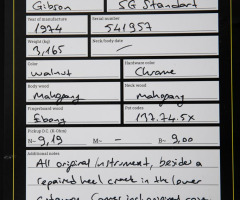 Gibson SG Standart
Year of manufacture Serial number
1974 541957
Weight (kg) Neck/body date
3,165 /
Color Hardware color
Walnut Chrome
Body wood Neck wood
Mahogany Mahogany
Fingerboard wood Pot codes
Ebony 137.74.5x
Pickup D.C. (K Ohm)
N- 9,19 M- - B- 9,00
Additional notes
All original instrument, beside a
repaired heel crack in the lower
cutaway. Comes incl. original case